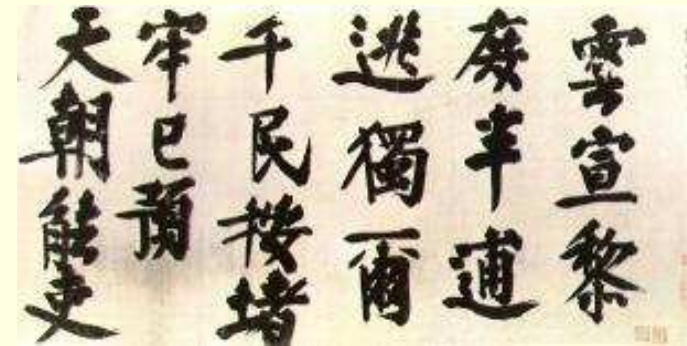 雲宣黎
庶半逋
逃獨爾
千民按堵
牢已預
天朝能吏